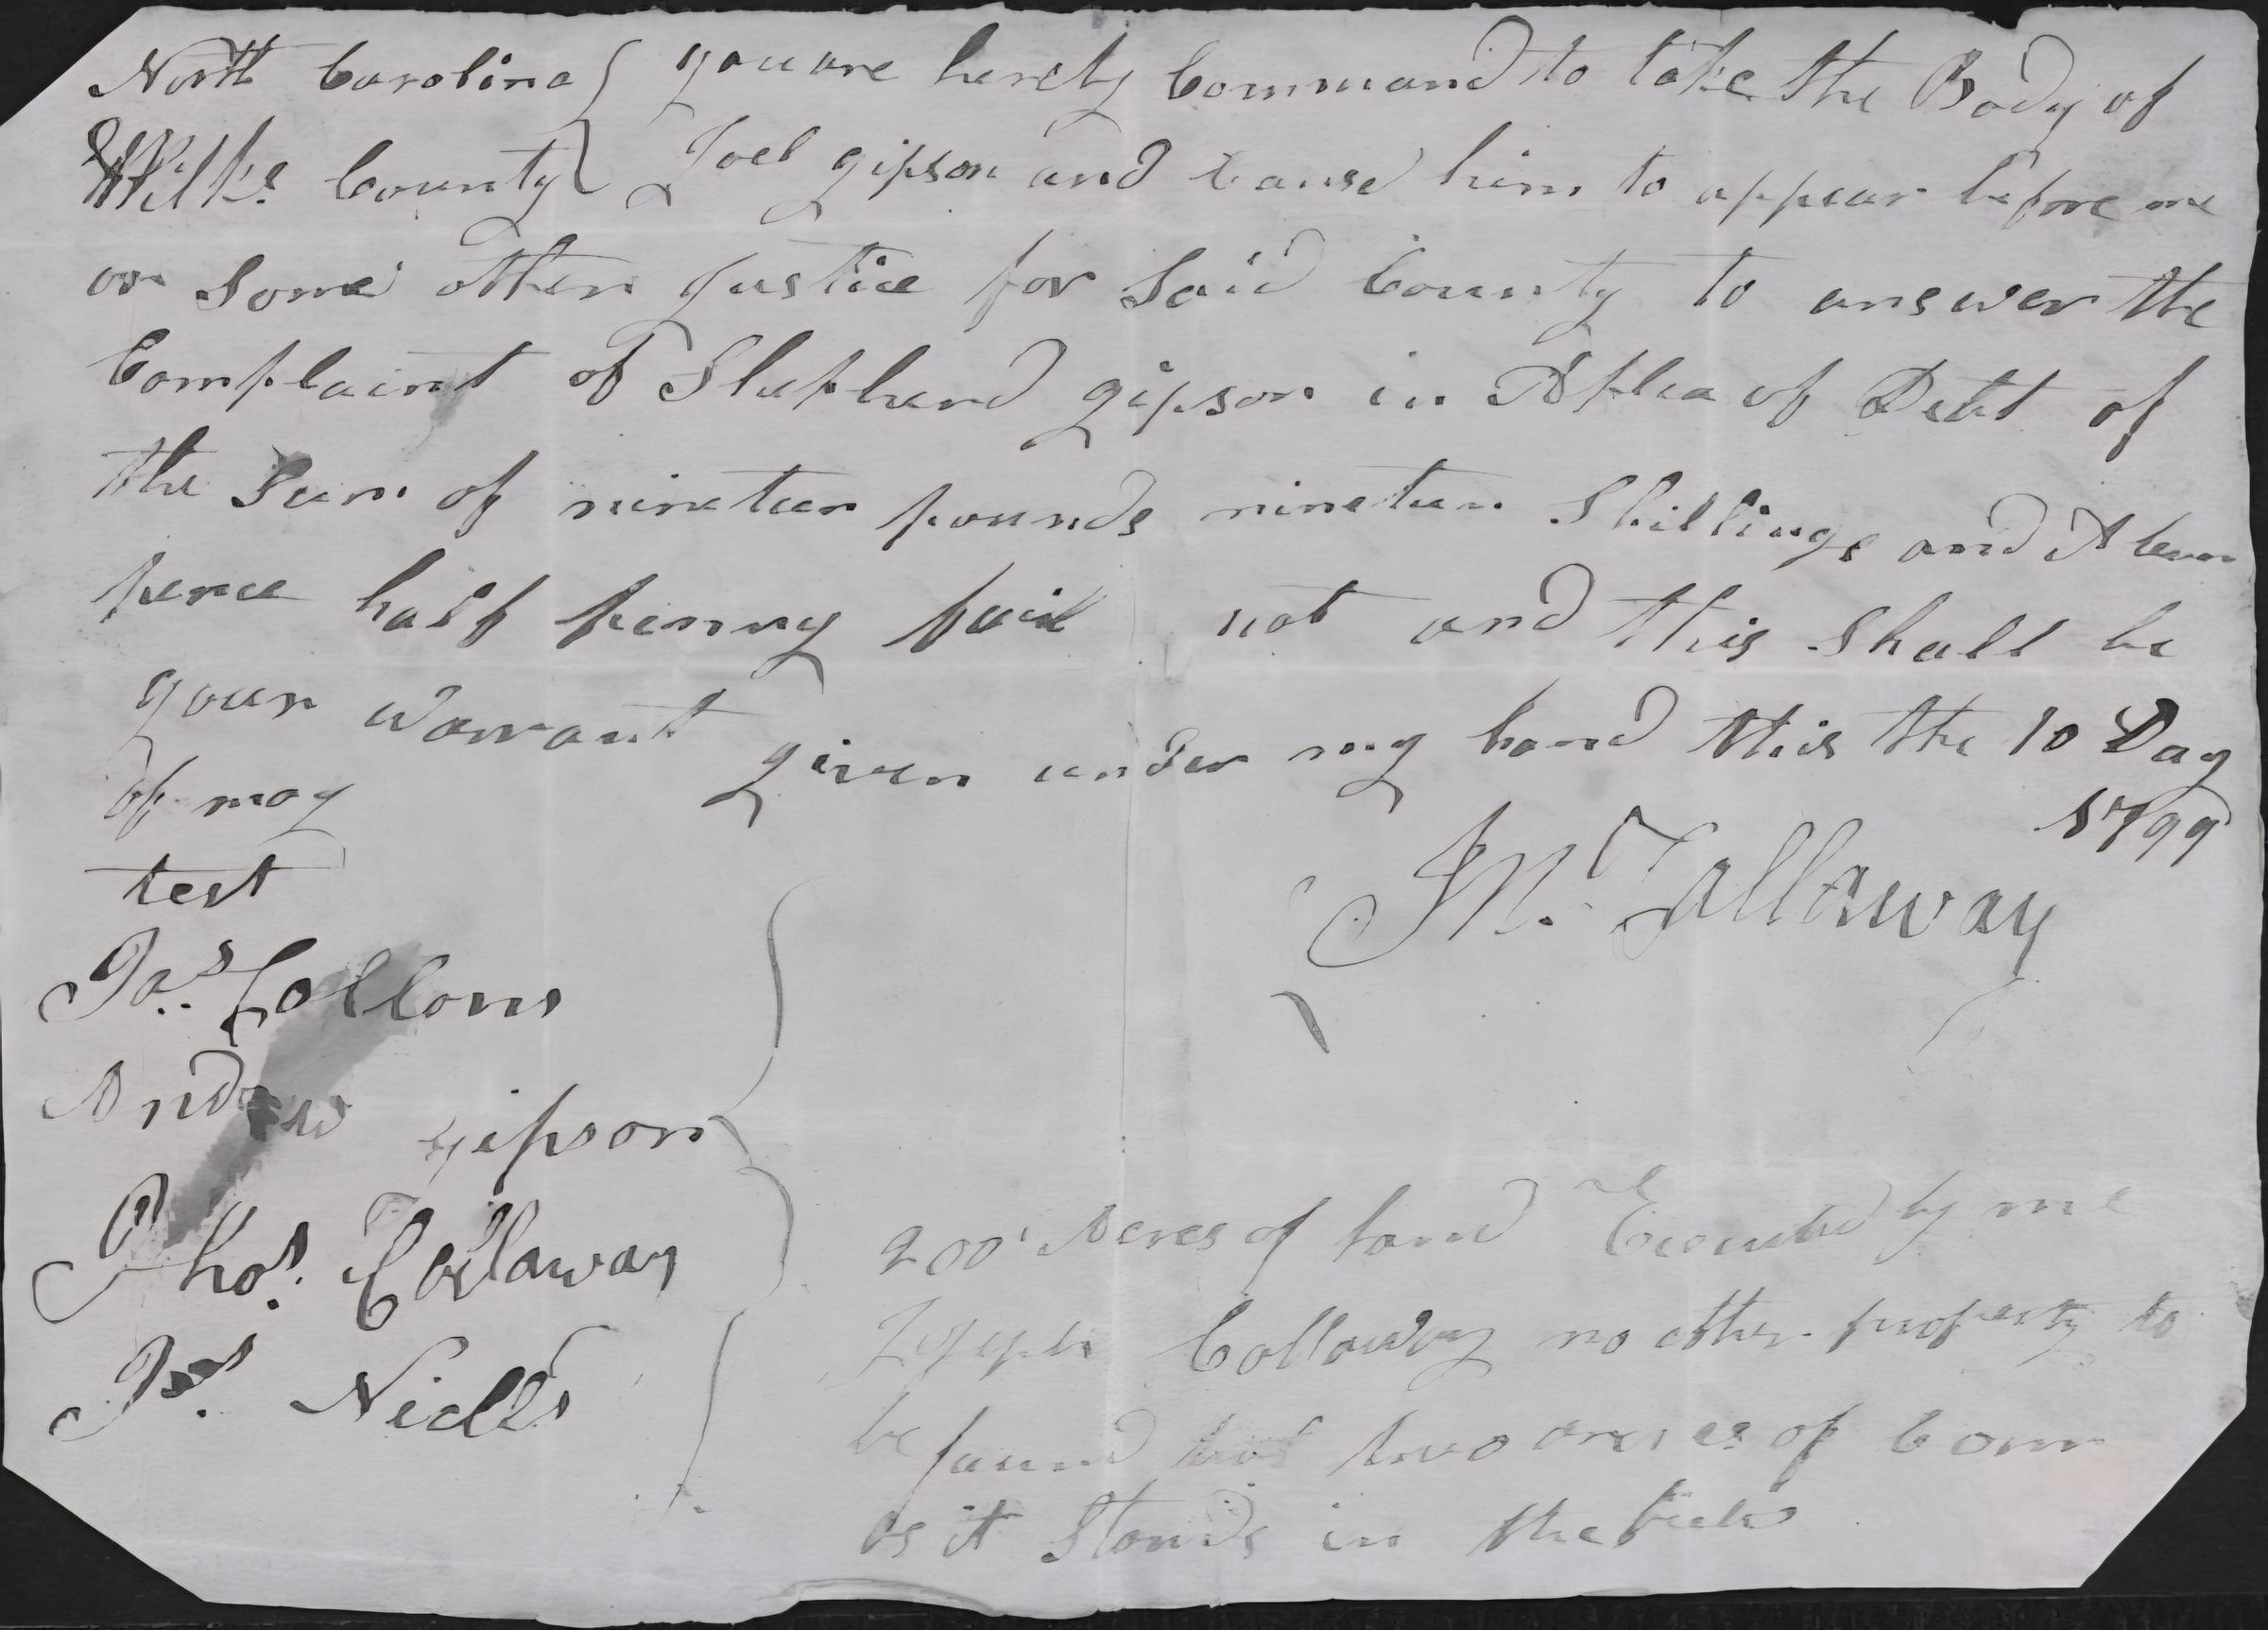 North Carolina } you are herely Command to take the Body of
Wilks County } Joel gipson and Cause him to appear before me
or Some other Justice for Said County to answer the
Complaint of Shepherd gipson in A plea of Debt of
the Sum of nineteen pounds nineteen Shillings and A leven
pence half penny fail not and this Shall be
your warrant given under my hand this the 10 Day
of may 1799
test Jn. Callaway
Jas. Collons
Andrew gipson
Thos. Callaway
Jas. Niclls
200 Acres of land Executed by me
Joseph Callaway no other property to
be found but two acres of Corn
as it Stands in the field